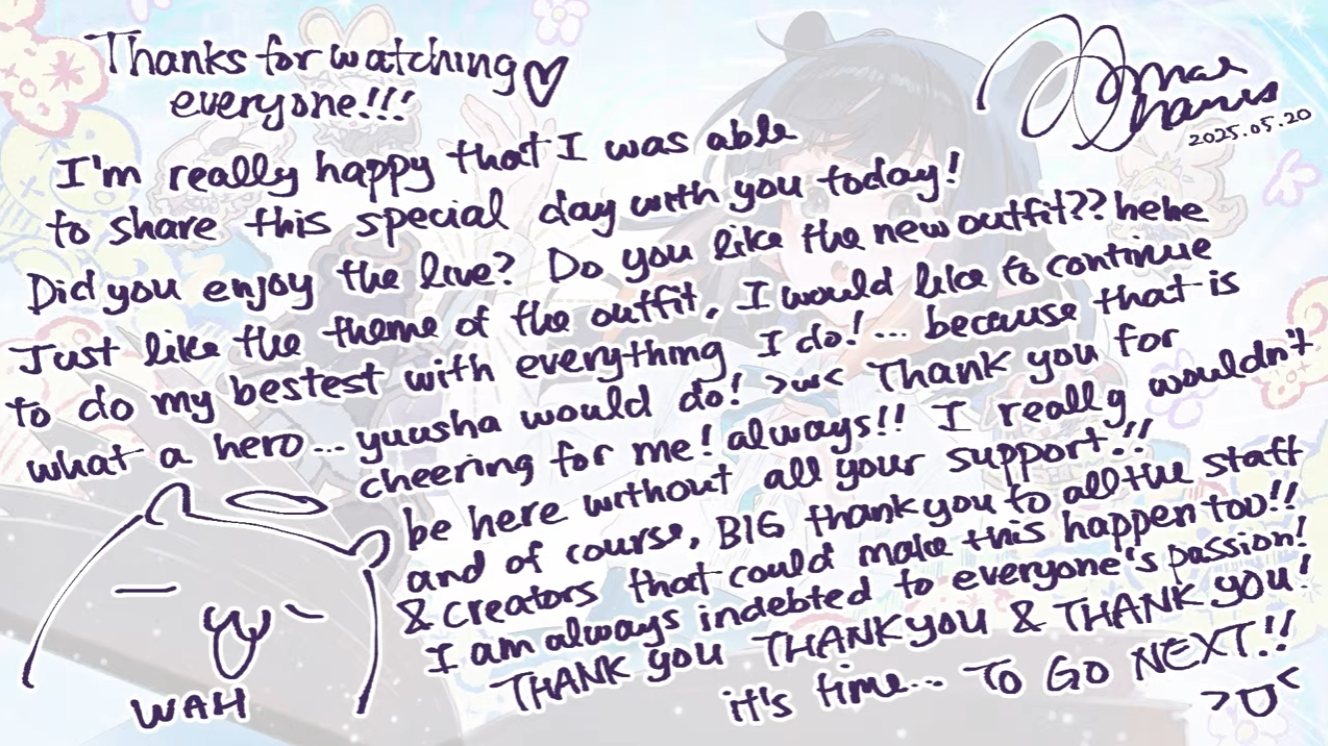 Thanks for watching♡
everyone!!!
2025.05.20
I'm really happy that I was able
to share this special day with you today!
Did you enjoy the live? Do you like the new outfit?? hehe
Just like the theme of the outfit, I would like to continue
to do my bestest with everything I do!... because that is
what a hero... yuusha would do! >w< Thank you for
cheering for me! always!! I really wouldn't
be here without all your support!!
and of course, BIG thank you to all the staff
& creators that could make this happen too!!
I am always indebted to everyone's passion!
THANK you THANK you & THANK you!
it's time... TO GO NEXT!!
>U<
WAH